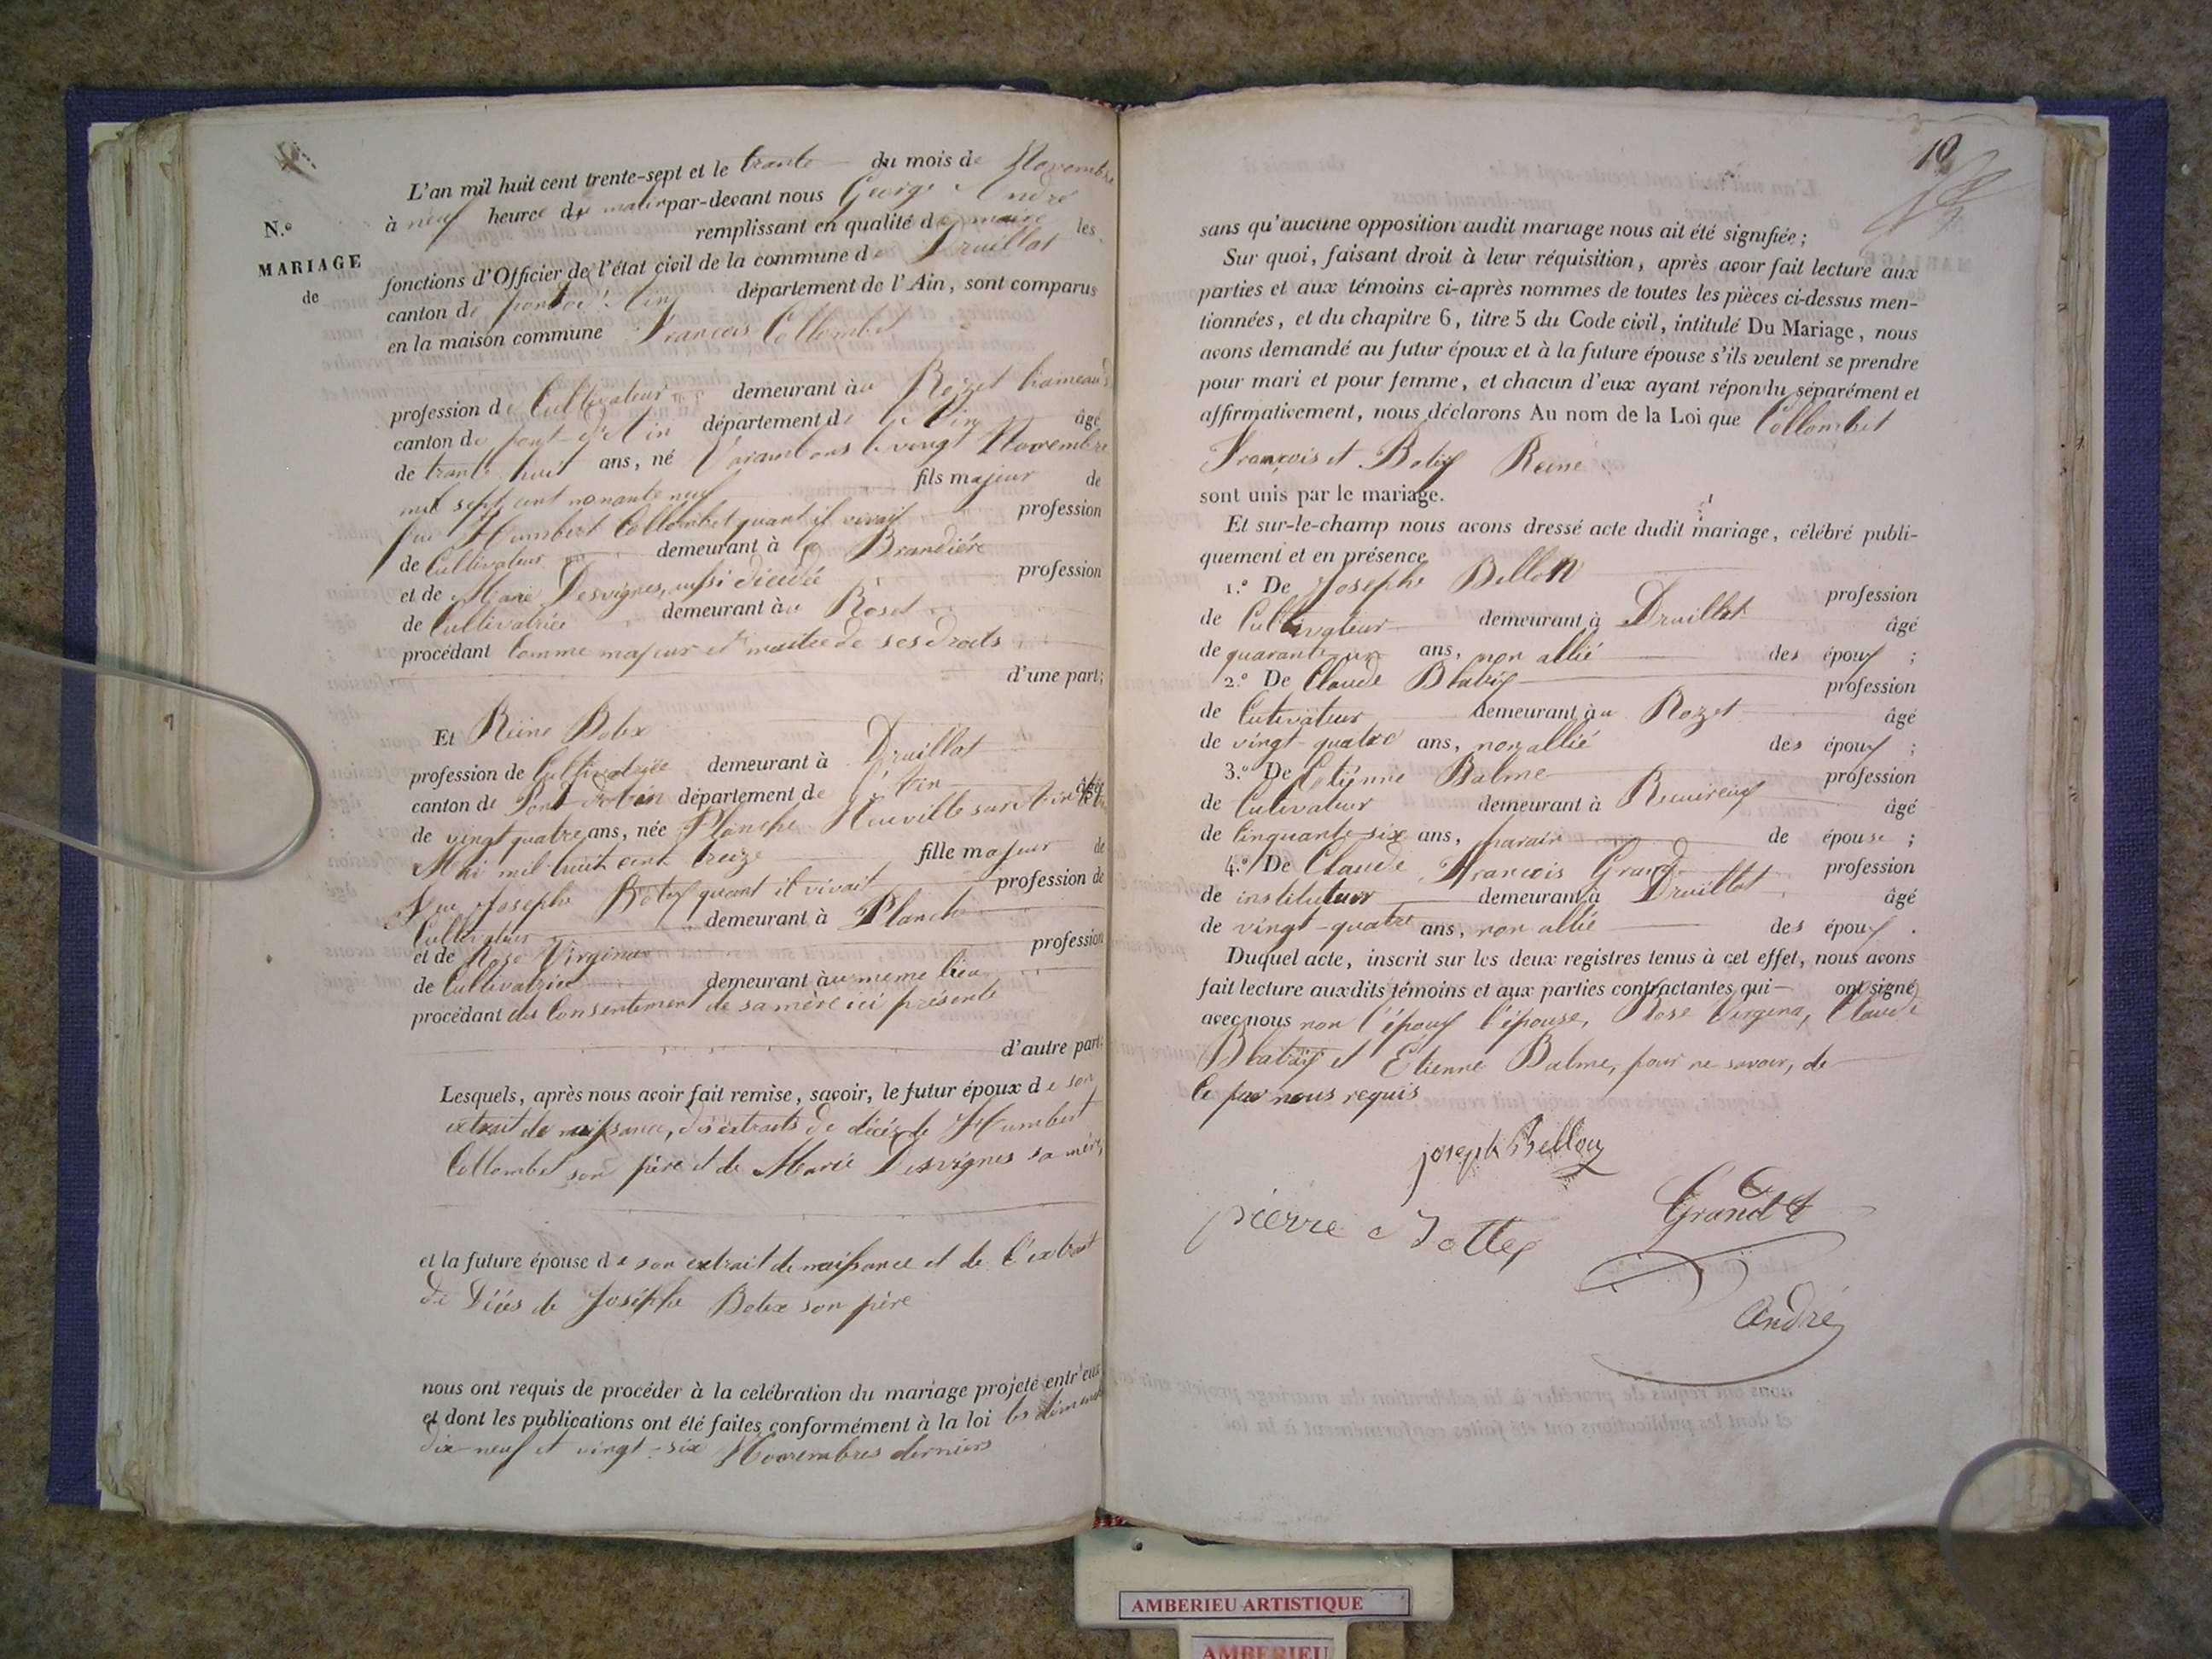 L'an mil huit cent trente-sept et le trante du mois de Novembre
à neuf heure du matin par-devant nous George André
N.º
remplissant en qualité de maire les
MARIAGE
de
fonctions d'Officier de l'état civil de la commune de Druillat
canton de pont d'Ain département de l'Ain, sont comparus
en la maison commune François Collombet
profession de Cultivateur demeurant au Rozet hameau
canton de pont-d'Ain département de l'Ain âgé
de trante huit ans, né Varambons le vingt Novembre
mil sept cent nonante neuf fils majeur de
feu Humbert Collombet quant il vivait profession
de Cultivateur demeurant à la Brandière
et de Marie Desvignes, aussi décédée profession
de Cultivatrice demeurant au Roset
procédant Comme majeur et maitre de ses droits
d'une part;
Et Reine Botex
profession de Cultivatrice demeurant à Druillat
canton de Pont-d'Ain département de l'Ain âgée
de vingt quatre ans, née Planche Neuville sur Ain
Mai mil huit cent treize fille majeur de
Feu Joseph Botex quant il vivait profession de
Cultivateur demeurant à Planche
et de Rose Virgina profession
de Cultivatrice demeurant au meme lieu
procédant du Consentement de sa mère ici présente
d'autre part.
Lesquels, après nous avoir fait remise, savoir, le futur époux de son
extrait de naissance, des extraits de décès de Humbert
Collombet son père et de Marie Desvignes sa mère,
et la future épouse de son extrait de naissance et de l'extrait
de Décès de Joséphe Botex son père
nous ont requis de procéder à la celébration du mariage projeté entr'eux
et dont les publications ont été faites conformément à la loi les dimanches
dix-neuf et vingt-six Novembres derniers
10
sans qu'aucune opposition audit mariage nous ait été signifiée;
Sur quoi, faisant droit à leur réquisition, après avoir fait lecture aux
parties et aux témoins ci-après nommes de toutes les pièces ci-dessus men-
tionnées, et du chapitre 6, titre 5 du Code civil, intitulé Du Mariage, nous
avons demandé au futur époux et à la future épouse s'ils veulent se prendre
pour mari et pour femme, et chacun d'eux ayant répondu séparément et
affirmativement, nous déclarons Au nom de la Loi que Collombet
François et Botex Reine
sont unis par le mariage.
Et sur-le-champ nous avons dressé acte dudit mariage, célébré publi-
quement et en présence
1.º De Josephe Bellon profession
de Cultivateur demeurant à Druillat âgé
de quarante un ans, non allié des époux ;
2.º De Claude Blabix profession
de Cutivateur demeurant au Rozet âgé
de vingt-quatre ans, non allié des époux ;
3.º De Etiénne Balme profession
de Cutivateur demeurant à âgé
de Cinquante-six ans, parain de épouse ;
4.º De Claude François Grand profession
de instituteur demeurant à Druillat âgé
de vingt-quatre ans, non allié des époux .
Duquel acte, inscrit sur les deux registres tenus à cet effet, nous avons
fait lecture auxdits témoins et aux parties contractantes qui — ont signé
avec nous non l'époux l'épouse, Rose Virgina, Claude
Blabix et Etienne Balme, pour ne savoir, de
ce par nous requis
joseph Bellon
pierre Bottex
Grand
André
AMBERIEU ARTISTIQUE
AMBERIEU